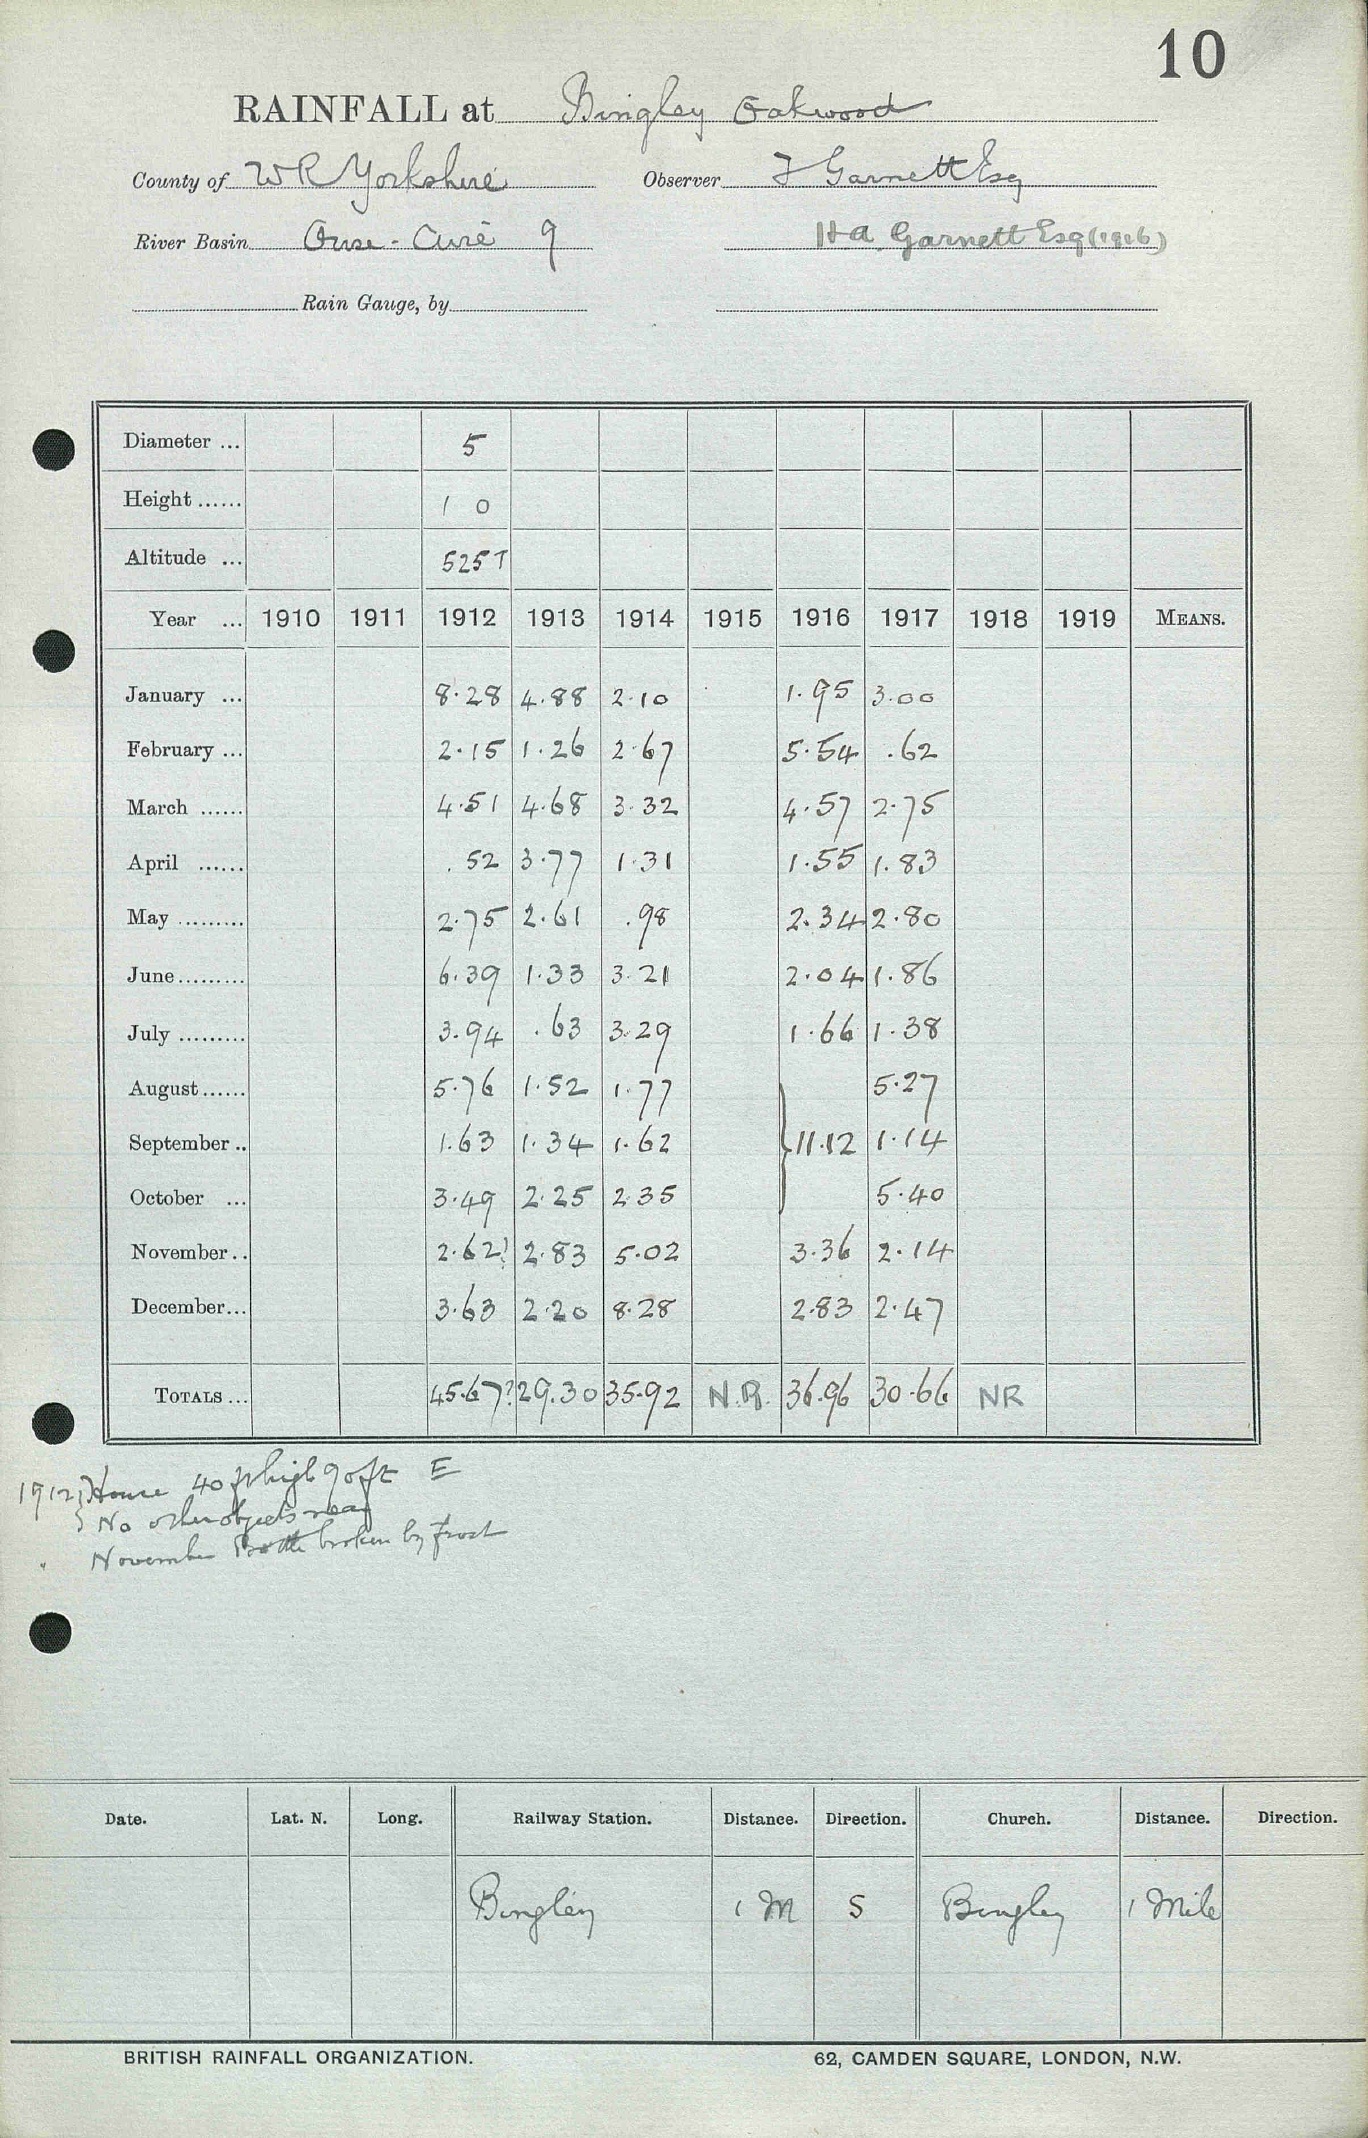 10
RAINFALL at Bingley Oakwood
County of W R Yorkshire Observer J Garnett Esq
River Basin Ouse - Aire 9 H A Garnett Esq (1916)
Rain Gauge, by
Diameter ... 5
Height ...... 1 0
Altitude ... 525 T
Year ... 1910 1911 1912 1913 1914 1915 1916 1917 1918 1919 MEANS.
January ... 8.28 4.88 2.10 1.95 3.00
February ... 2.15 1.26 2.67 5.54 .62
March ...... 4.51 4.68 3.32 4.57 2.75
April ...... .52 3.77 1.31 1.55 1.83
May ......... 2.75 2.61 .98 2.34 2.80
June......... 6.39 1.33 3.21 2.04 1.86
July ......... 3.94 .63 3.29 1.66 1.38
August...... 5.76 1.52 1.77 5.27
September .. 1.63 1.34 1.62 } 11.12 1.14
October ... 3.49 2.25 2.35 5.40
November .. 2.62? 2.83 5.02 3.36 2.14
December... 3.63 2.20 8.28 2.83 2.47
TOTALS ... 45.67? 29.30 35.92 N.R. 36.96 30.66 NR
1912 } House 40 ft high 90 ft E
} No other objects near
" November Bottle broken by frost
Date. Lat. N. Long. Railway Station. Distance. Direction. Church. Distance. Direction.
Bingley 1 M S Bingley 1 Mile
BRITISH RAINFALL ORGANIZATION. 62, CAMDEN SQUARE, LONDON, N.W.